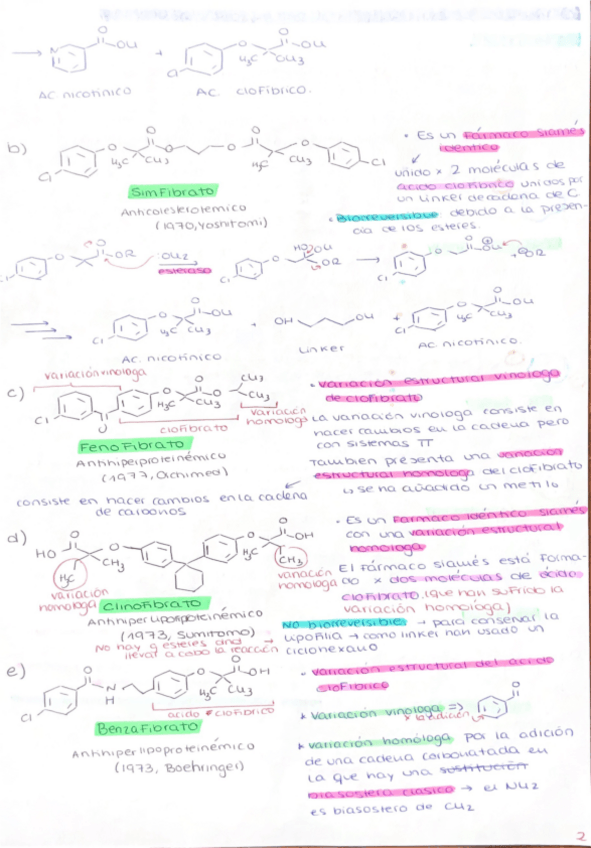 N
O
OH
+
Cl
O
H₃C
CH₃
O
OH
Ac nicotínico
Ac. clofíbrico.
b)
Cl
O
H₃C
CH₃
O
O
O
O
H₃C
CH₃
O
Cl
Simfibrato
Anticolesterolemico
(1970, Yoshitomi)
• Es un fármaco siamés
idéntico
unido x 2 moléculas de
ácido clofíbrico unidos por
un linker de cadena de C.
• Biorreversible: debido a la presen-
cia de los esteres.
Cl
O
O
OR
:OH₂
esterasa
Cl
O
HO
OH
OR
Cl
O
O
OH
OR
Cl
O
H₃C
CH₃
O
OH
+
OH
OH
+
Cl
O
H₃C
CH₃
O
OH
Ac. nicotínico
linker
Ac nicotínico.
variación vinologa
c)
Cl
O
O
H₃C
CH₃
O
O
CH₃
CH₃
clofibrato
variación
homologa
Fenofibrato
Antihiperproteinémico
(1977,
consiste en hacer cambios en la cadena
de carbonos
• variación estructural vinologa
de clofibrato
La variación vinologa consiste en
hacer cambios en la cadena pero
con sistemas π
También presenta una variación
estructural homologa del clofibrato
↳ se ha añadido un metilo
d)
HO
O
O
CH₃
H₃C
O
O
OH
H₃C
CH₃
variación
homologa
variación
homologa
Clinofibrato
Antihiperlipoproteinémico
(1973, Sumitomo)
No hay
llevar a cabo la reacción
• Es un fármaco idéntico siamés
con una variación estructural
homologa
El fármaco siamés está forma-
do x dos moléculas de ácido
clofibrato. (que han sufrido la
variación homologa)
No biorreversible → para conservar la
lipofilia → como linker han usado un
ciclohexano
e)
Cl
O
N
H
O
H₃C
CH₃
O
OH
acido clofíbrico
Benzafibrato
Antihiperlipoproteinémico
(1973, Boehringer)
• variación estructural del acido
clofíbrico
* variación vinologa =>
O
x la adición
* variación homóloga por la adición
de una cadena carbonatada en
la que hay una sustitución
bioisostera clasico → el NH₂
es bioisostero de CH₂
2